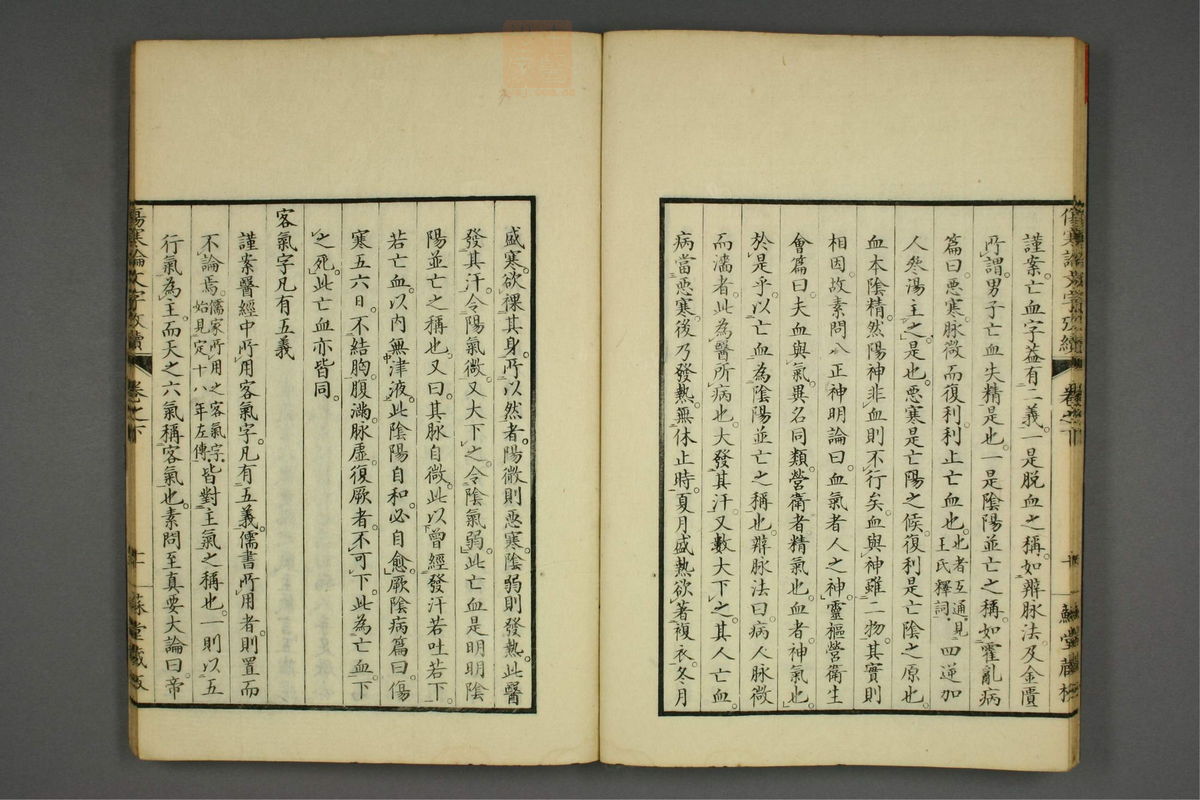 謹案亡血字蓋有二義一是脫血之稱如辨脉法及金匱
所謂男子亡血失精是也一是陰陽並亡之稱如霍亂病
篇曰惡寒脉微而復利利止亡血也止者互通見王氏釋詞四逆加
人參湯主之是也惡寒是亡陽之候復利是亡陰之原也
血本陰精然陽神非血則不行矣血與神雖二物其實則
相因故素問八正神明論曰血氣者人之神靈樞營衛生
會篇曰夫血與氣異名同類營衛者精氣也血者神氣也
於是乎以亡血為陰陽並亡之稱也辨脉法曰病人脉微
而濇者此為醫所病也大發其汗又數大下之其人亡血
病當惡寒後乃發熱無休止時夏月盛熱欲著複衣冬月
盛寒欲裸其身所以然者陽微則惡寒陰弱則發熱此醫
發其汗令陽氣微又大下之令陰氣弱此亡血是明明陰
陽並亡之稱也又曰其脉自微此以曾經發汗若吐若下
若亡血以內無津液此陰陽自和必自愈厥陰病篇曰傷
寒五六日不結胸腹滿脉虛復厥者不可下此為亡血下
之死此亡血亦皆同
客氣字凡有五義
謹案醫經中所用客氣字凡有五義儒書所用者則置而
不論焉儒家所用之客氣字始見定十八年左傳皆對主氣之稱也一則以五
行氣為主而天之六氣稱客氣也素問至真要大論曰帝
傷寒論文字攷續
卷之下